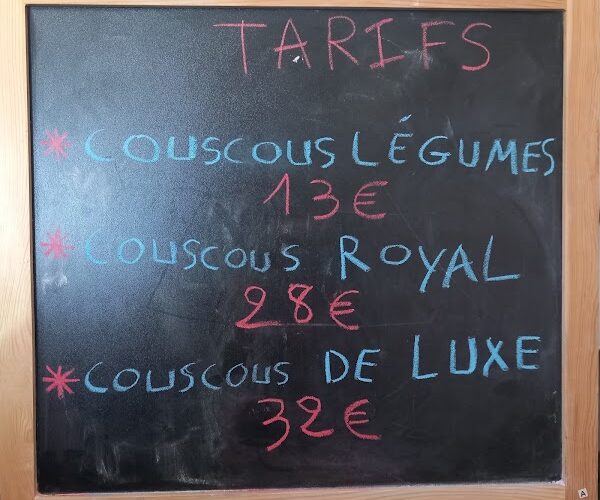 TARIFS
* COUSCOUS LÉGUMES
13€
* COUSCOUS ROYAL
28€
* COUSCOUS DE LUXE
32€
A